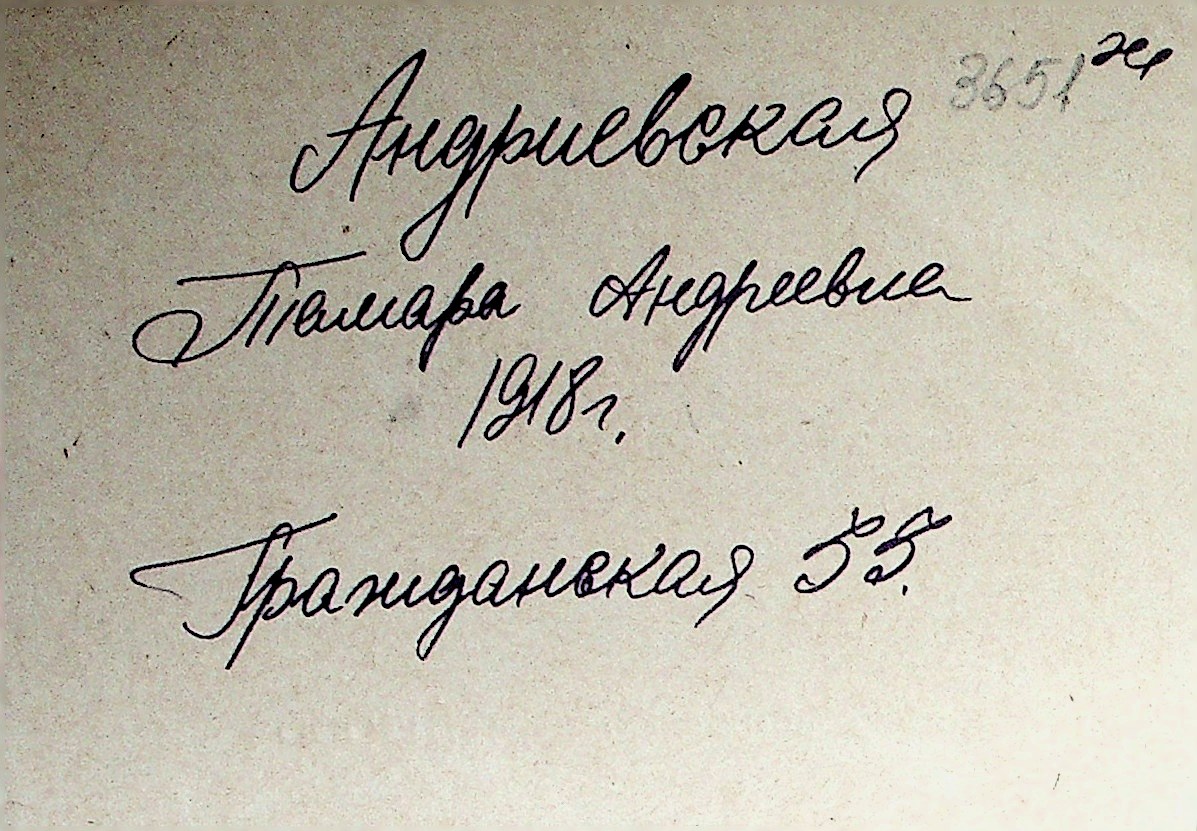 3651 ж
Андриевская
Тамара Андреевна
1918г.
Гражданская 55.